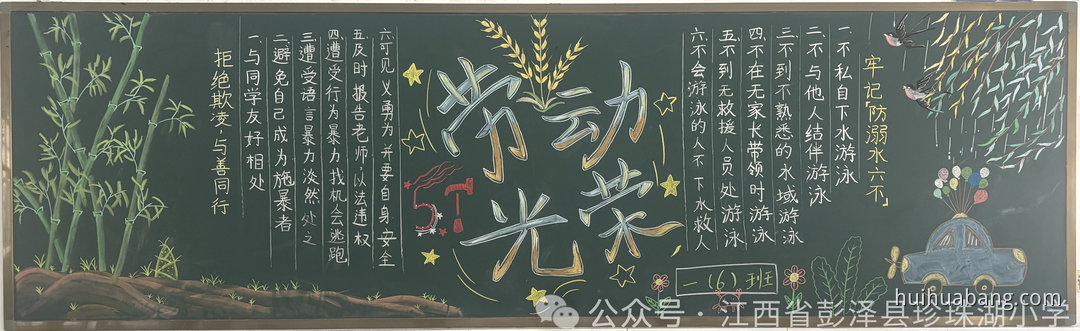 牢记「防溺水六不」
一不私自下水游泳
二不与他人结伴游泳
三不到不熟悉的水域游泳
四不在无家长带领时游泳
五不到无救援人员处游泳
六不会游泳的人不下水救人
劳动
光荣
51
一（6）班
拒绝欺凌，与善同行
一与同学友好相处
二避免自己成为施暴者
三遭受语言暴力淡然处之
四遭受行为暴力找机会逃跑
五及时报告老师，以法违权
六可见义勇为并要自身安全
公众号·江西省彭泽县珍珠湖小学
huihuabang.com